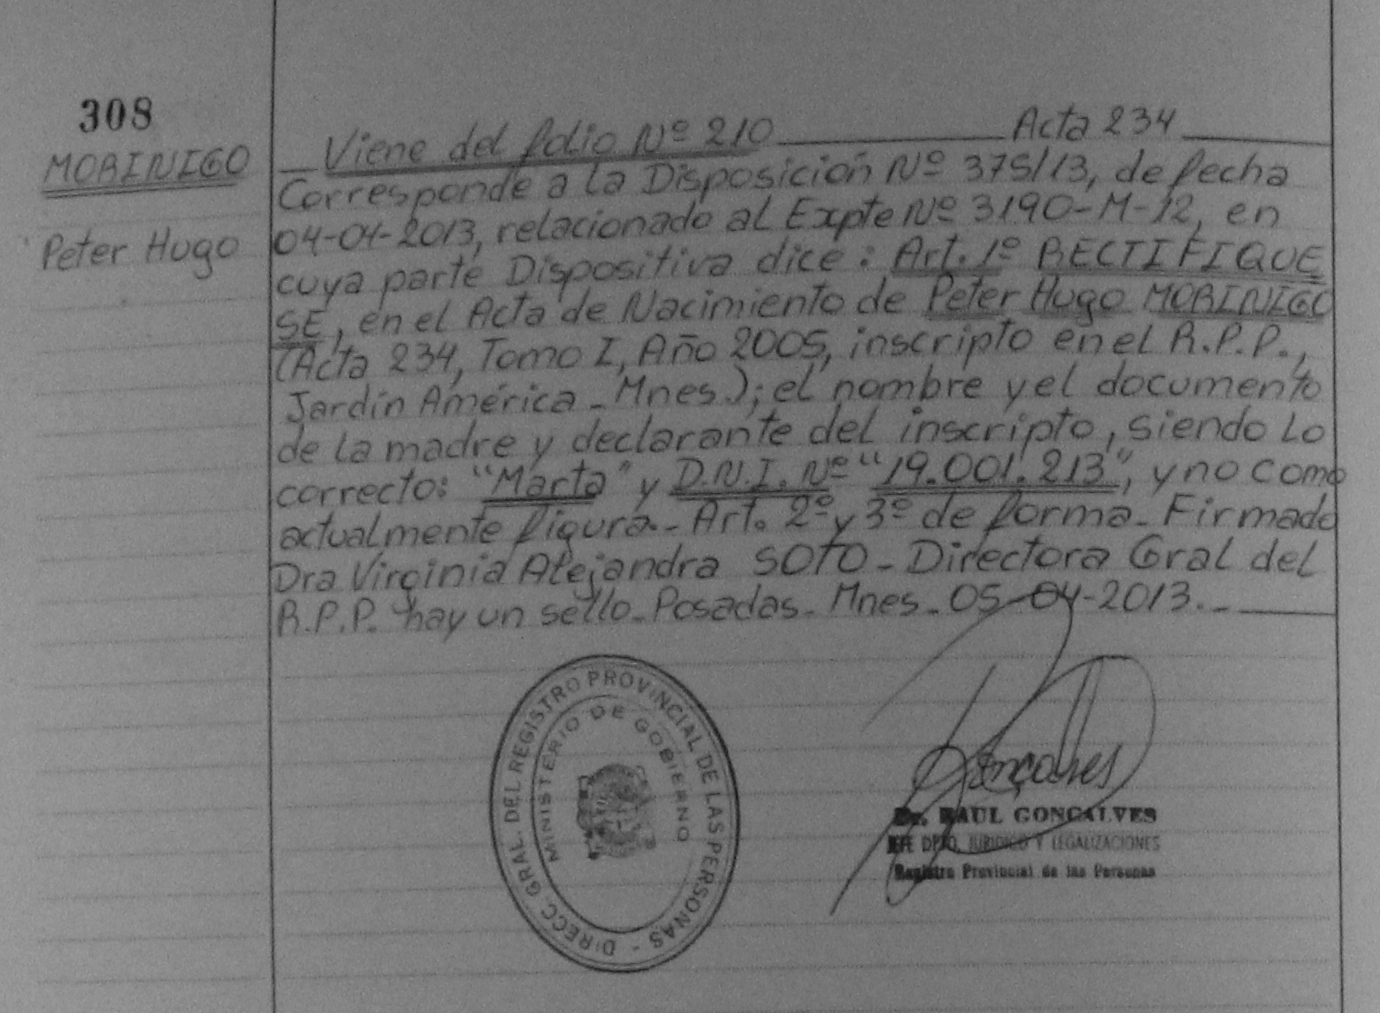 308
MORINIGO
Peter Hugo
Viene del folio Nº 210 Acta 234
Corresponde a la Disposición Nº 375/13, de fecha
04-04-2013, relacionado al Expte Nº 3190-M-12, en
cuya parte Dispositiva dice: Art. 1º RECTIFIQUE
SE, en el Acta de Nacimiento de Peter Hugo MORINIGO
(Acta 234, Tomo I, Año 2005, inscripto en el R.P.P.,
Jardín América - Mnes.); el nombre y el documento
de la madre y declarante del inscripto, siendo lo
correcto: "Marta" y D.N.I. Nº "19.001.213", y no como
actualmente figura.- Art. 2º y 3º de forma - Firmado
Dra Virginia Alejandra SOTO - Directora Gral del
R.P.P. hay un sello - Posadas - Mnes - 05-04-2013.-
DIRECC. GRAL. DEL REGISTRO PROVINCIAL DE LAS PERSONAS -
MINISTERIO DE GOBIERNO
Gonçalves
Dr. RAUL GONCALVES
JEFE DPTO. JURIDICO Y LEGALIZACIONES
Registro Provincial de las Personas